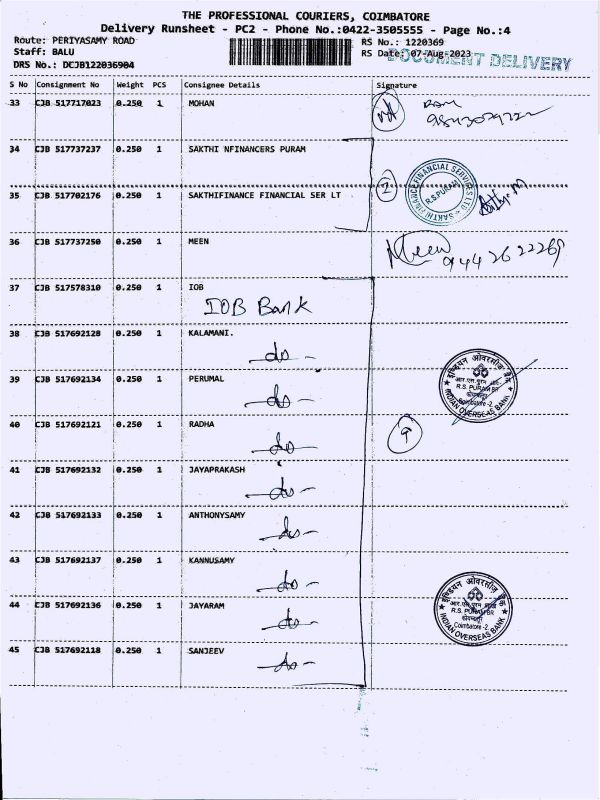 THE PROFESSIONAL COURIERS, COIMBATORE
Delivery Runsheet - PC2 - Phone No.:0422-3505555 - Page No.:4
Route: PERIYASAMY ROAD
RS No.: 1220369
Staff: BALU
RS Date: 07-Aug-2023
DOCUMENT DELIVERY
DRS No.: DCJB122036904
S No Consignment No Weight PCS Consignee Details Signature
33 CJB 517717023 0.250 1 MOHAN
34 CJB 517737237 0.250 1 SAKTHI NFINANCERS PURAM
SAKTHI FINANCE FINANCIAL SERVICES LTD
R.S.PURAM
2
35 CJB 517702176 0.250 1 SAKTHIFINANCE FINANCIAL SER LT
36 CJB 517737250 0.250 1 MEEN
Meen
9442622269
37 CJB 517578310 0.250 1 IOB
IOB Bank
38 CJB 517692128 0.250 1 KALAMANI.
do -
इण्डियन ओवरसीज़ बैंक
R.S. PURAM BR
कोयम्बतूर
Coimbatore -2.
INDIAN OVERSEAS BANK
39 CJB 517692134 0.250 1 PERUMAL
do -
40 CJB 517692121 0.250 1 RADHA
9
do -
41 CJB 517692132 0.250 1 JAYAPRAKASH
do -
42 CJB 517692133 0.250 1 ANTHONYSAMY
do -
43 CJB 517692137 0.250 1 KANNUSAMY
do -
44 CJB 517692136 0.250 1 JAYARAM
do -
इण्डियन ओवरसीज़ बैंक
R.S. PURAM BR
कोयम्बतूर
Coimbatore -2.
INDIAN OVERSEAS BANK
45 CJB 517692118 0.250 1 SANJEEV
do -